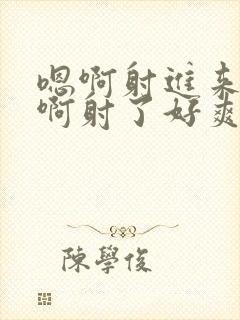 嗯啊射進来
啊射了好爽
陳學俊